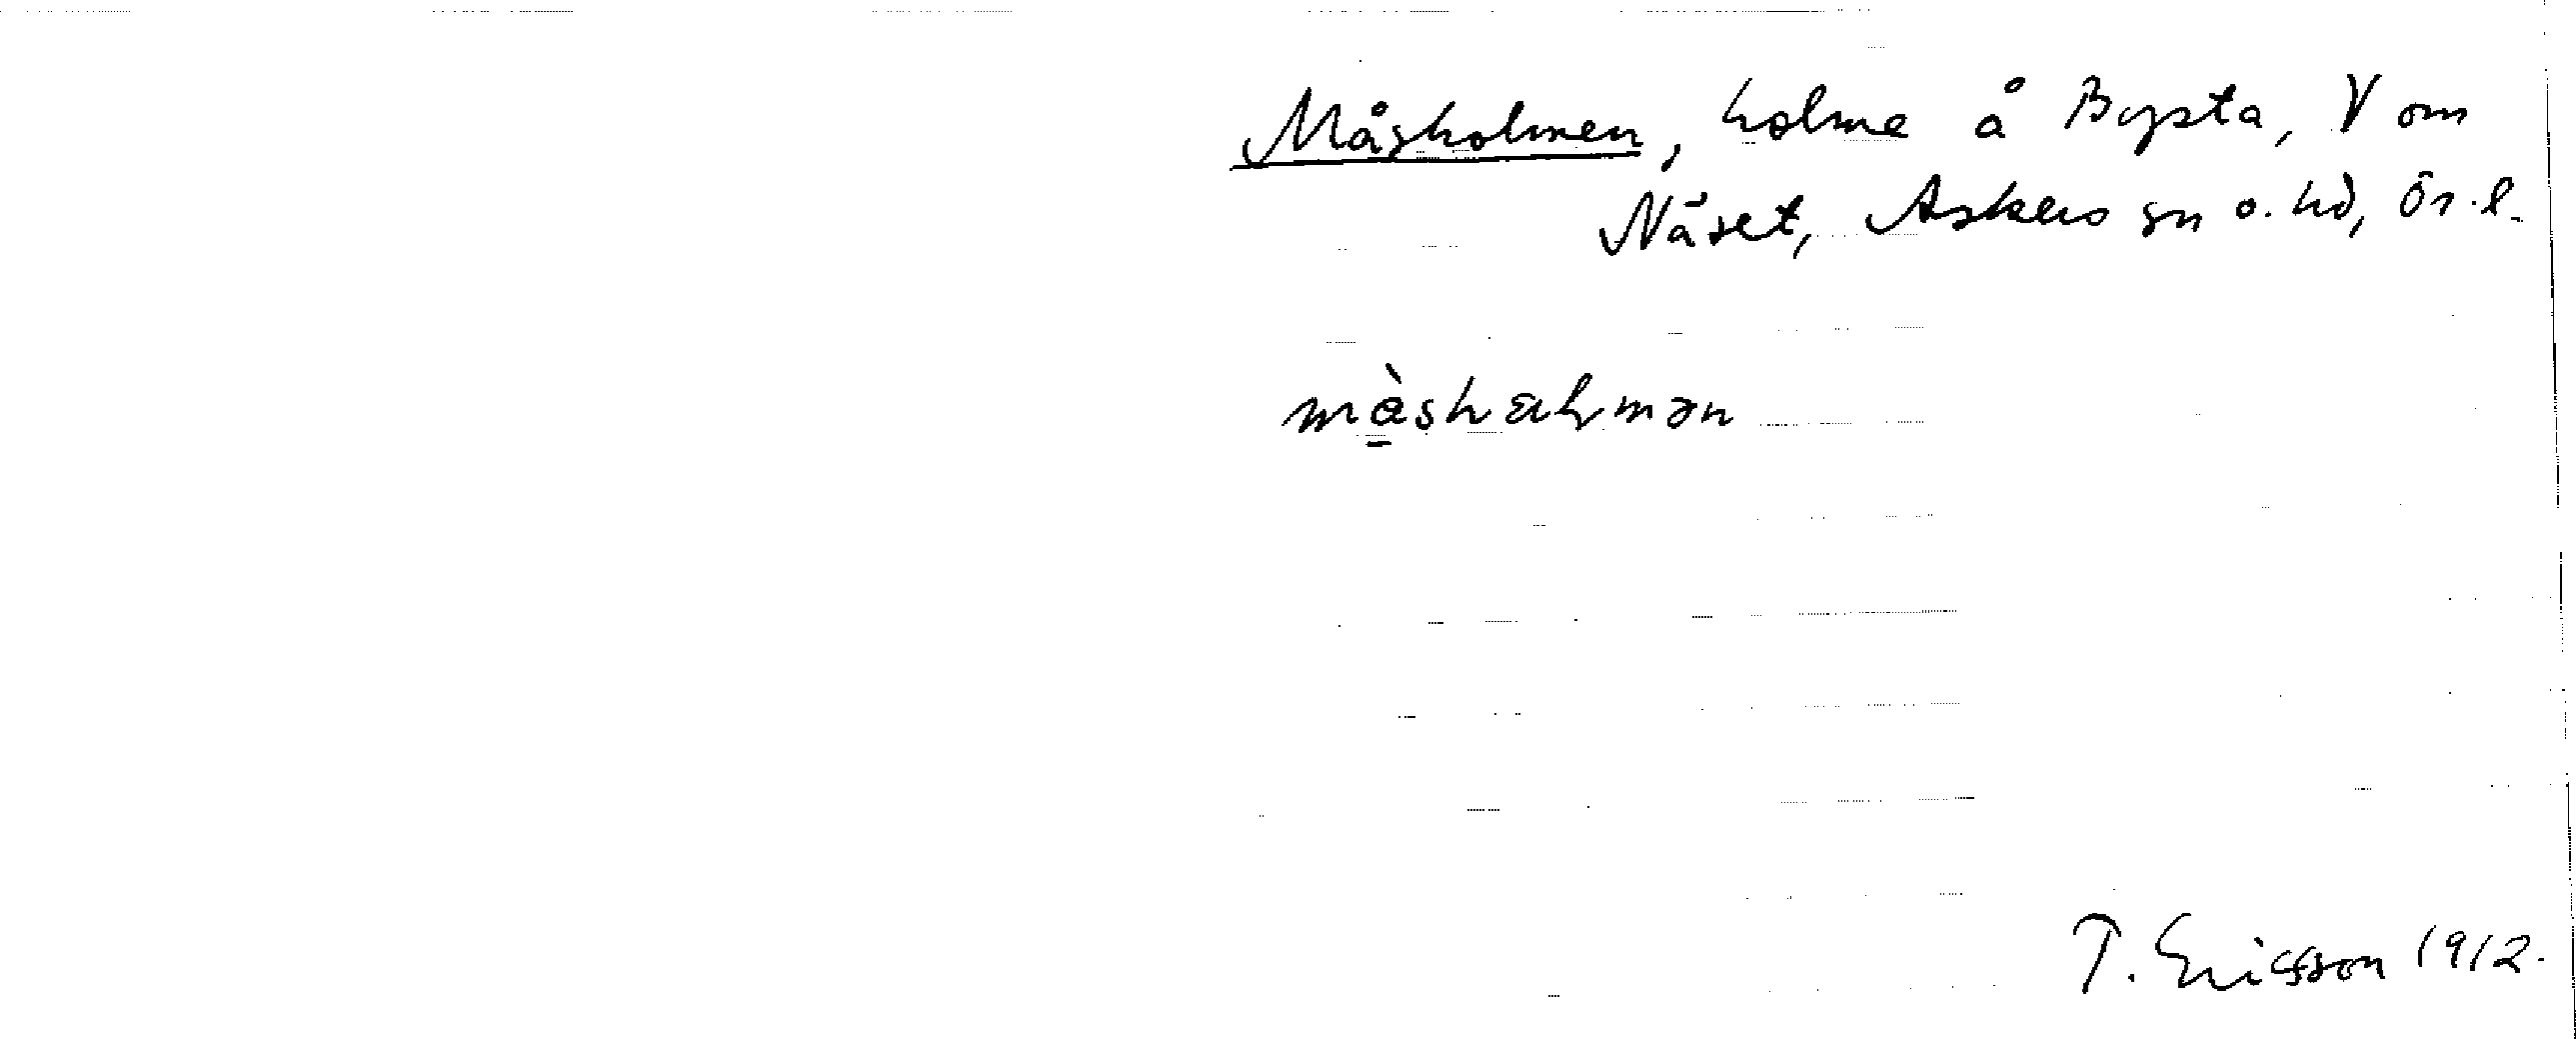 Måsholmen, holme å Bysta, V om
Näset, Askers sn o. hd, Ör. l.
T. Ericsson 1912.